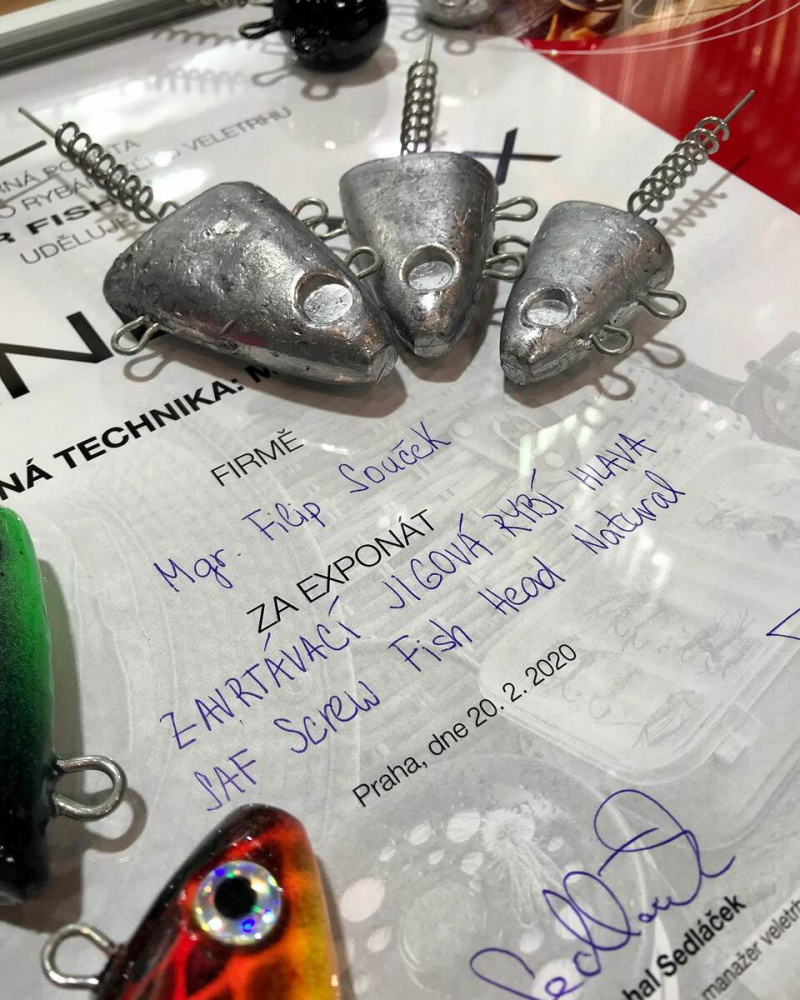 VELETRHU
UDĚLUJE
NÁ TECHNIKA:
FIRMĚ
Mgr. Filip Souček
ZA EXPONÁT
ZAVRTÁVACÍ JIGOVÁ RYBÍ HLAVA
SAF Screw Fish Head Natural
Praha, dne 20. 2. 2020
hal Sedláček
manažer veletrh